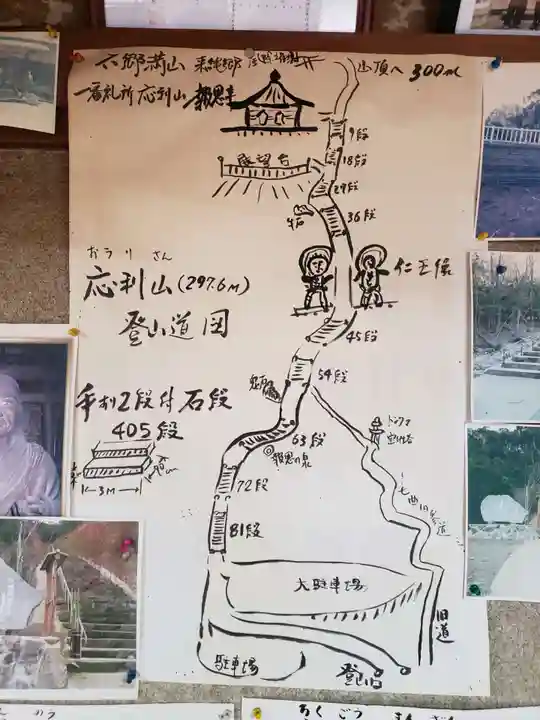 六郷満山 来縄郷
山頂へ 300m
一番札所 応利山 報恩寺
9段
展望台
18段
29段
36段
おうり さん
応利山(297.6M)
登山道図
仁王像
45段
54段
手すり2段付 石段
405段
3M
63段
報恩の泉
72段
81段
七曲り参道
大駐車場
旧道
駐車場
登山口